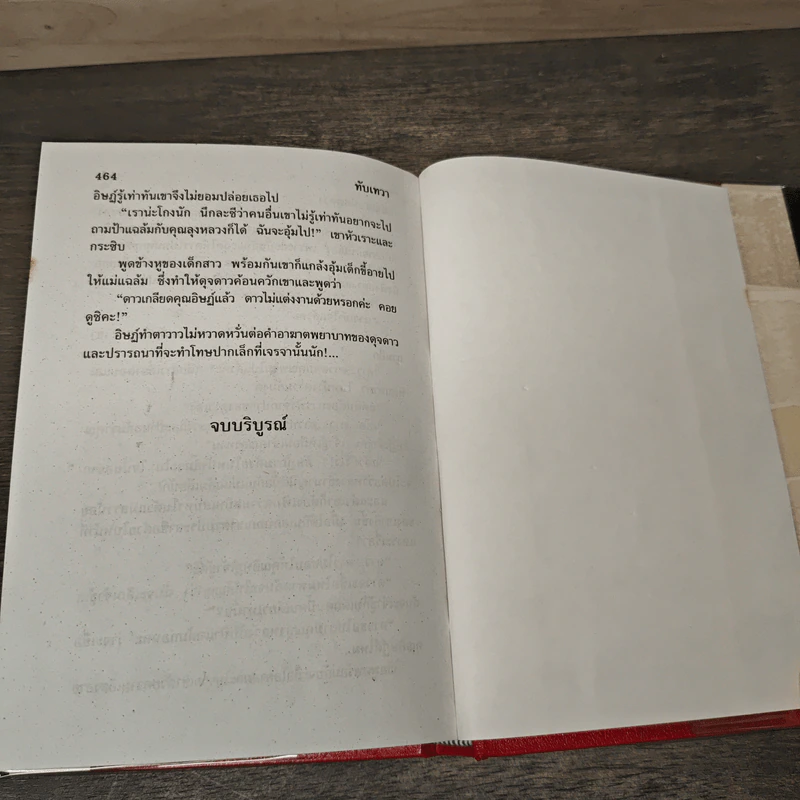 464
ทับเทวา
อิษฏ์รู้เท่าทันเขาจึงไม่ยอมปล่อยเธอไป
“เราน่ะโกงนัก นึกละซีว่าคนอื่นเขาไม่รู้เท่าทันอยากจะไป
ถามป้าแฉล้มกับคุณลุงหลวงก็ได้ ฉันจะอุ้มไป!” เขาหัวเราะและ
กระซิบ
พูดข้างหูของเด็กสาว พร้อมกันเขาก็แกล้งอุ้มเด็กขี้อายไป
ให้แม่แฉล้ม ซึ่งทำให้ดุจดาวค้อนควักเขาและพูดว่า
“ดาวเกลียดคุณอิษฏ์แล้ว ดาวไม่แต่งงานด้วยหรอกค่ะ คอย
ดูซิคะ!”
อิษฏ์ทำตาวาวไม่หวาดหวั่นต่อคำอาฆาตพยาบาทของดุจดาว
และปรารถนาที่จะทำโทษปากเล็กที่เจรจานั้นนัก!...
จบบริบูรณ์